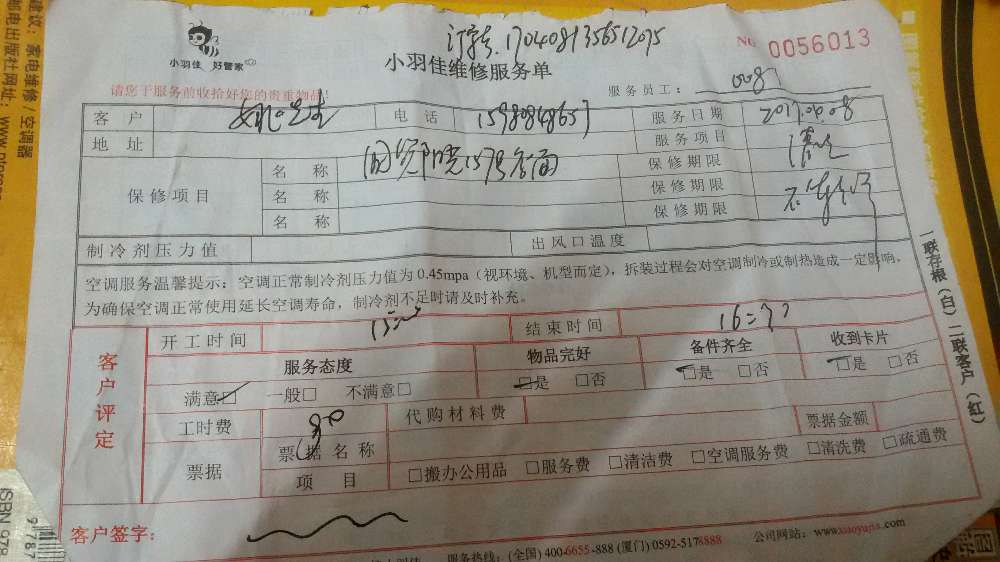 小羽佳 好管家
小羽佳维修服务单
№ 0056013
请您于服务前收拾好您的贵重物品!
服务员工: 008
客户 电话 服务日期 2017.04.08
地址 服务项目
保修项目 名称 保修期限
名称 保修期限
名称 保修期限
制冷剂压力值 出风口温度
空调服务温馨提示:空调正常制冷剂压力值为0.45mpa(视环境、机型而定),拆装过程会对空调制冷或制热造成一定影响。
为确保空调正常使用延长空调寿命,制冷剂不足时请及时补充。
客户评定
开工时间 结束时间
服务态度 物品完好 备件齐全 收到卡片
满意□ 一般□ 不满意□ □是 □否 □是 □否 □是 □否
工时费 代购材料费 票据金额
票据 票据名称
项目 □搬办公用品 □服务费 □清洁费 □空调服务费 □清洗费 □疏通费
客户签字:
服务热线:(全国)400-6655-888 (厦门)0592-5178888 公司网站:www.xiaoyujia.com
一联存根(白)二联客户(红)
建议:家电维修/空调器
邮电出版社网址:www.p
ISBN 978
9 787